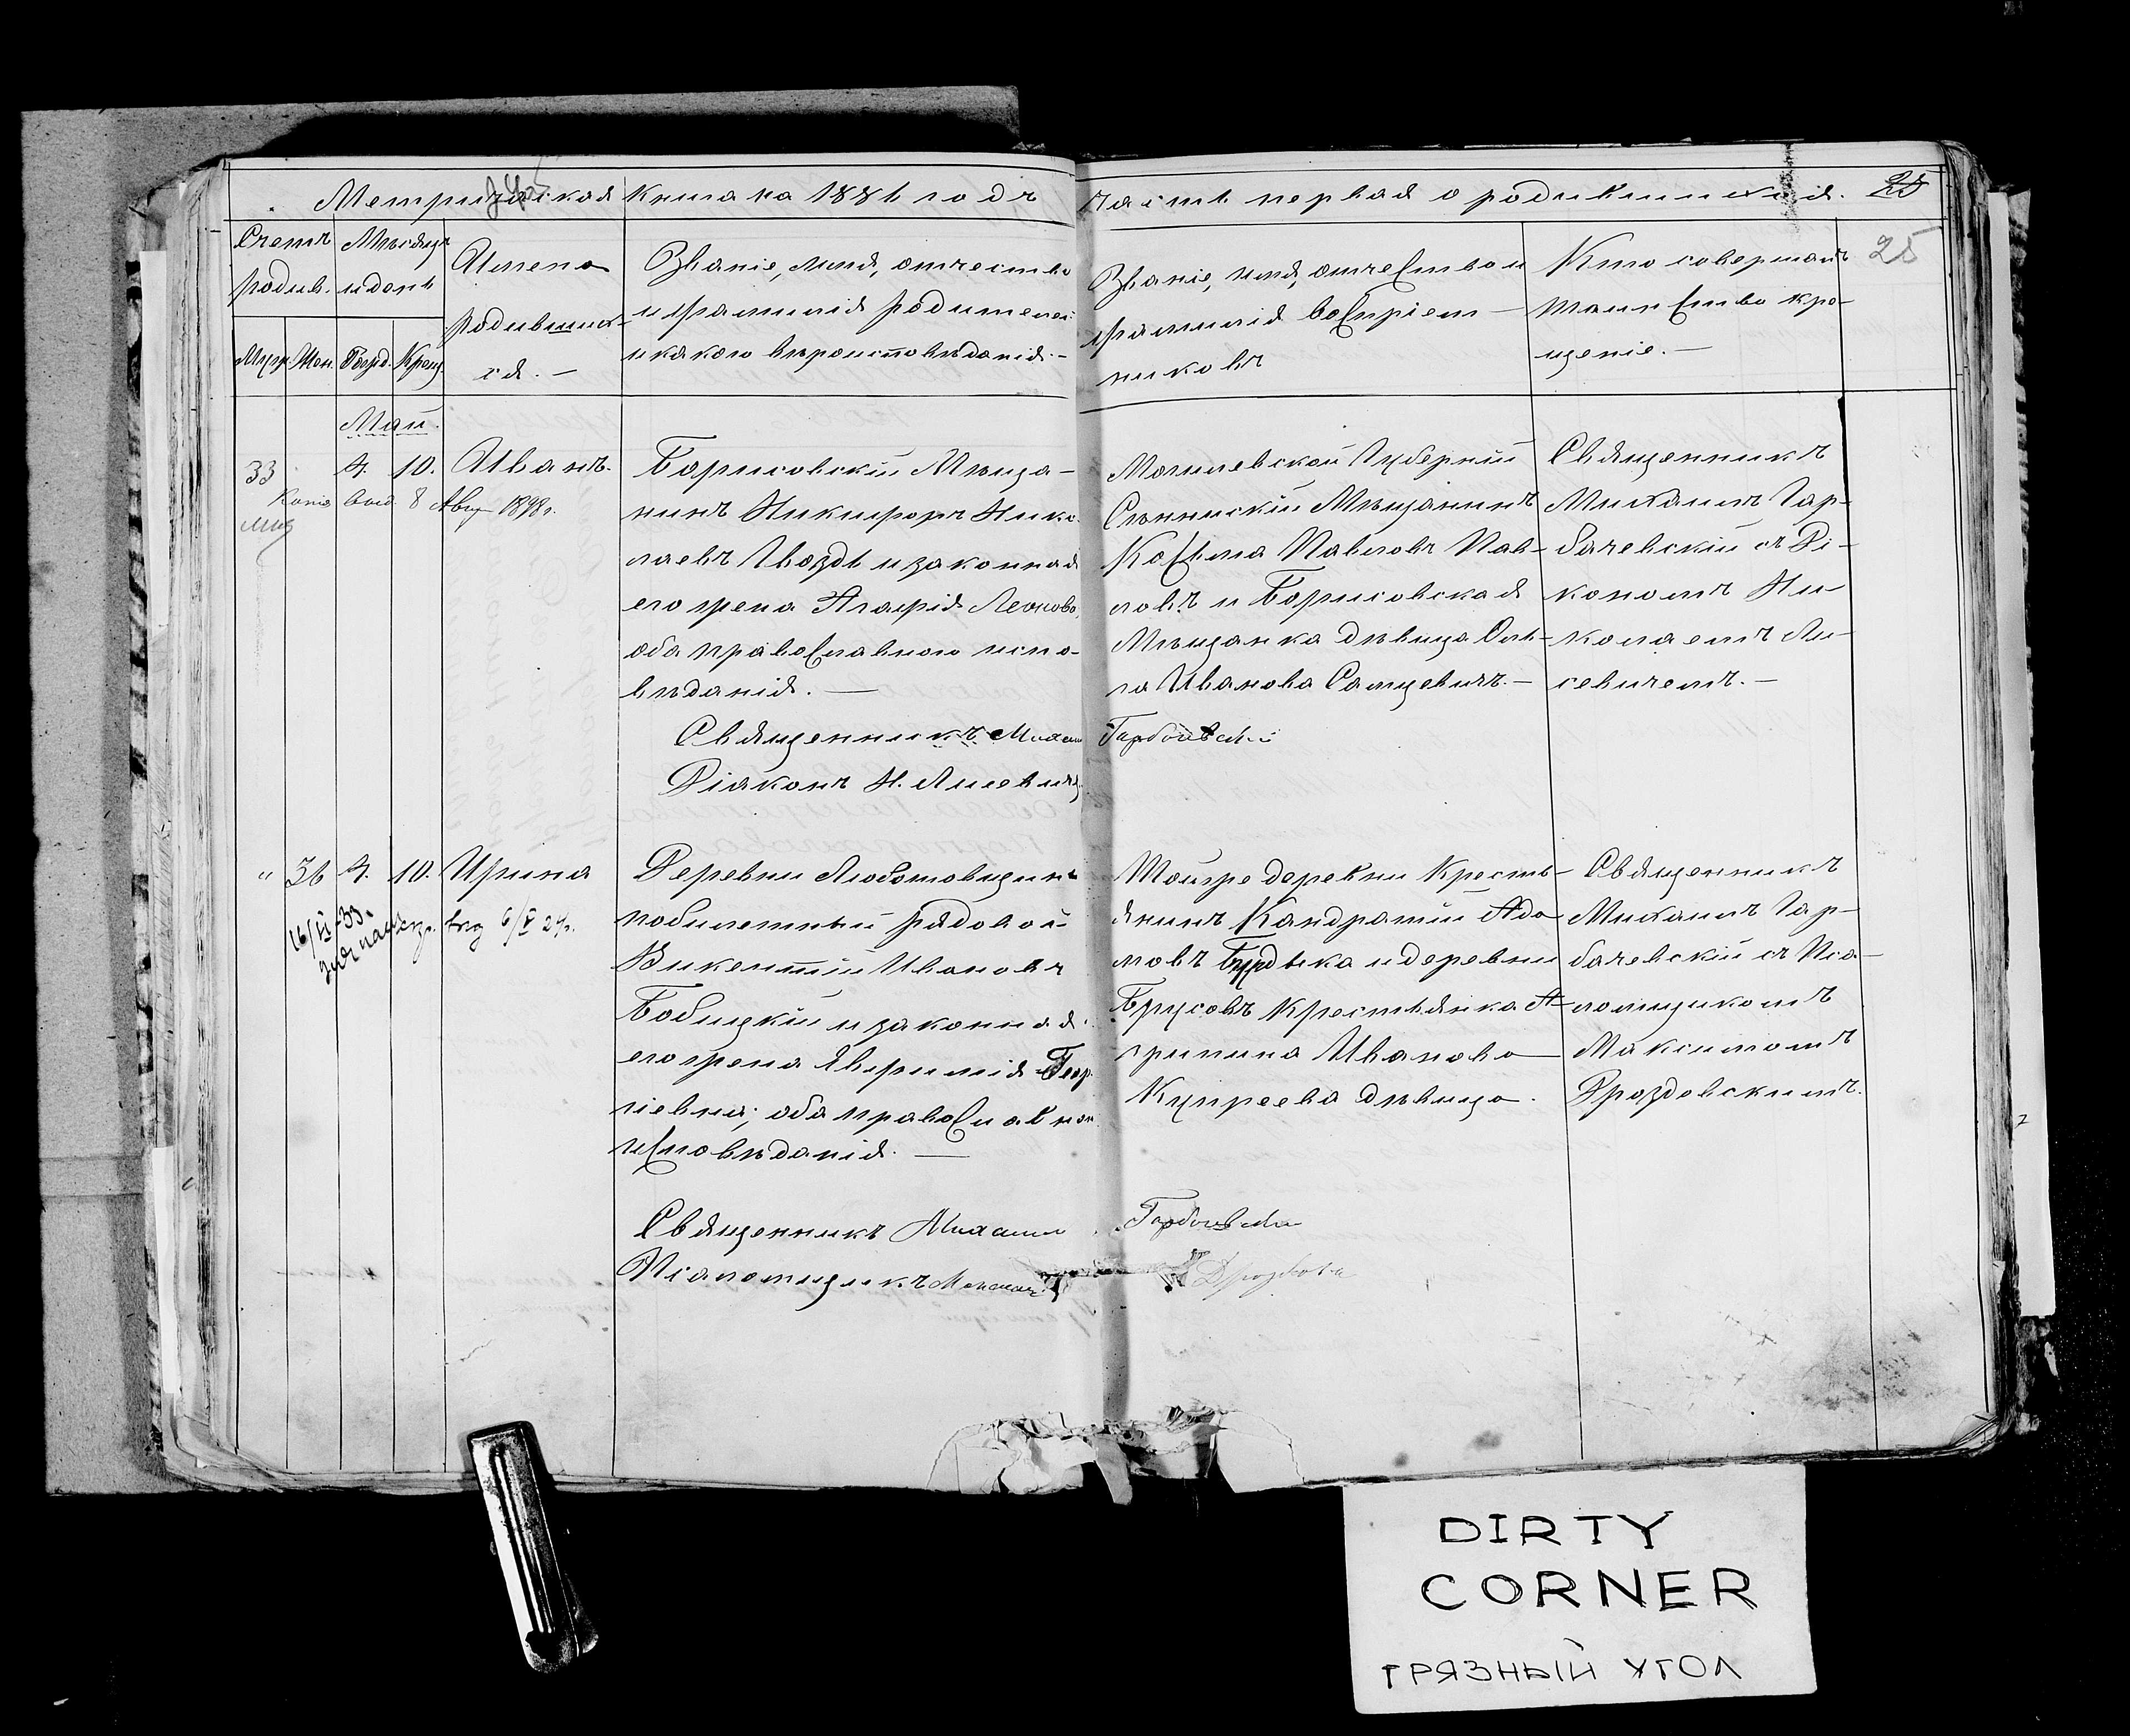 Метрическая книга на 1881 годъ
часть первая о родившихся.
25
25
Счетъ
родив.
Муж. Жен.
Мѣсяцъ
и день
Рожд. Крещ.
Имена
родивших-
ся. —
Званіе, имя, отчество
и фамилія родителей
и какого вѣроисповѣданія. —
Званіе, имя, отчество и
фамилія воспріем-
никовъ
Кто совершалъ
таинство кре-
щеніе. —
Май.
33 4. 10. Иванъ.
Копія выд 8 Авг 1898 г.
Борисовскій Мѣща-
нинъ Никифоръ Нико-
лаевъ Гвоздь и законная
его жена Агафія Леонова,
оба православного испо-
вѣданія. —
Священникъ Михаил
Діаконъ Н. Лисевичъ
Могилевской Губерніи
Сѣннискій Мѣщанинъ
Косьма Павловъ Пав-
ловъ и Борисовская
Мѣщанка дѣвица Оль-
га Иванова Сацевичъ. —
Гарбачевскій
Священникъ
Михаилъ Гар-
бачевскій съ Ді-
кономъ Ни-
колаемъ Ли-
севичемъ. —
" 36 4. 10. Ирина
16/II-33.
выд 6/V 24 г.
Деревни Любатовщины
побилетный рядовой
Викентій Ивановъ
Бобицкій и законная
его жена Евфимія Геор-
гіевна; оба православнаго
исповѣданія. —
Священникъ Михаил
Псаломщикъ Максимъ
Тойже деревни Кресть-
янинъ Кандратій Ада-
мовъ Бурдыка и деревни
Брусовъ Крестьянка А-
грипина Иванова
Купреева дѣвица.
Гарбачевскій
Дроздовск
Священникъ
Михаилъ Гар-
бачевскій съ Пса-
ломщикомъ
Максимомъ
Дроздовскимъ.
DIRTY
CORNER
ГРЯЗНЫЙ УГОЛ